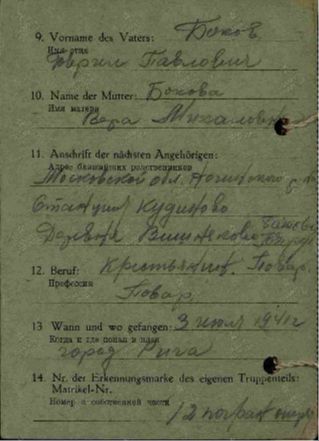 9. Vorname des Vaters: Боков
Имя отца
Павлович
10. Name der Mutter: Бокова
Имя матери
Вера Михаловна
11. Anschrift der nächsten Angehörigen:
Адрес ближайших родственников
Московской обл. Ногинского р
Станция Кудиново
Деревня
12. Beruf: Крестьянин. Повар.
Профессия
Повар.
13 Wann und wo gefangen: 3 июля 1941г
Когда и где попал в плен
город Рига
14. Nr. der Erkennungsmarke des eigenen Truppenteils:
Matrikel-Nr.
Номер о собственной части
12 погран